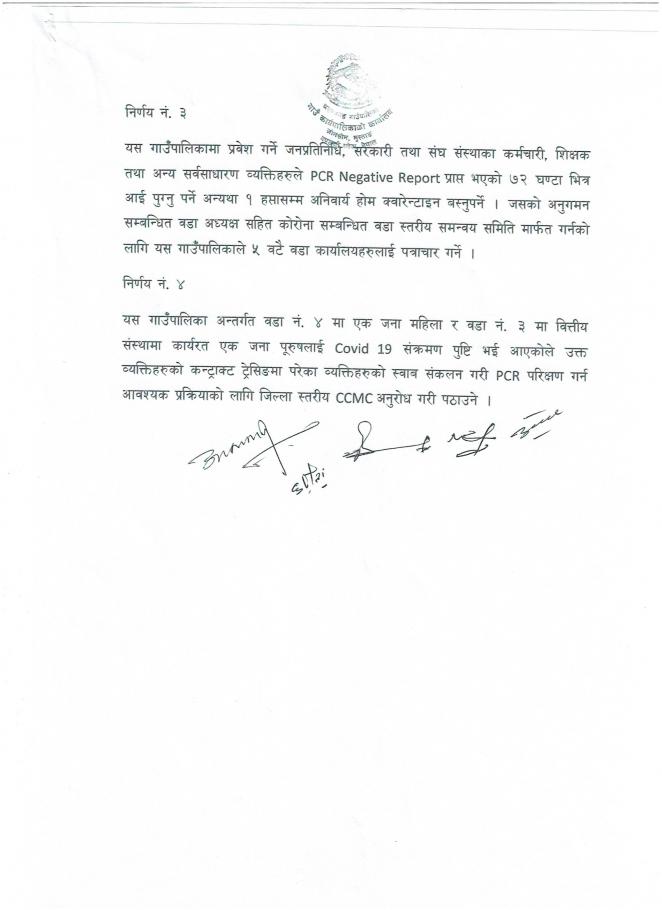 निर्णय नं. ३
गाउँ कार्यपालिकाको कार्यालय
यस गाउँपालिकामा प्रवेश गर्ने जनप्रतिनिधि, सरकारी तथा संघ संस्थाका कर्मचारी, शिक्षक
तथा अन्य सर्वसाधारण व्यक्तिहरुले PCR Negative Report प्राप्त भएको ७२ घण्टा भित्र
आई पुग्नु पर्ने अन्यथा १ हप्तासम्म अनिवार्य होम क्वारेन्टाइन बस्नुपर्ने । जसको अनुगमन
सम्बन्धित वडा अध्यक्ष सहित कोरोना सम्बन्धित वडा स्तरीय समन्वय समिति मार्फत गर्नको
लागि यस गाउँपालिकाले ५ वटै वडा कार्यालयहरुलाई पत्राचार गर्ने ।
निर्णय नं. ४
यस गाउँपालिका अन्तर्गत वडा नं. ४ मा एक जना महिला र वडा नं. ३ मा वित्तीय
संस्थामा कार्यरत एक जना पूरुषलाई Covid 19 संक्रमण पुष्टि भई आएकोले उक्त
व्यक्तिहरुको कन्ट्राक्ट ट्रेसिङमा परेका व्यक्तिहरुको स्वाव संकलन गरी PCR परिक्षण गर्न
आवश्यक प्रक्रियाको लागि जिल्ला स्तरीय CCMC अनुरोध गरी पठाउने ।